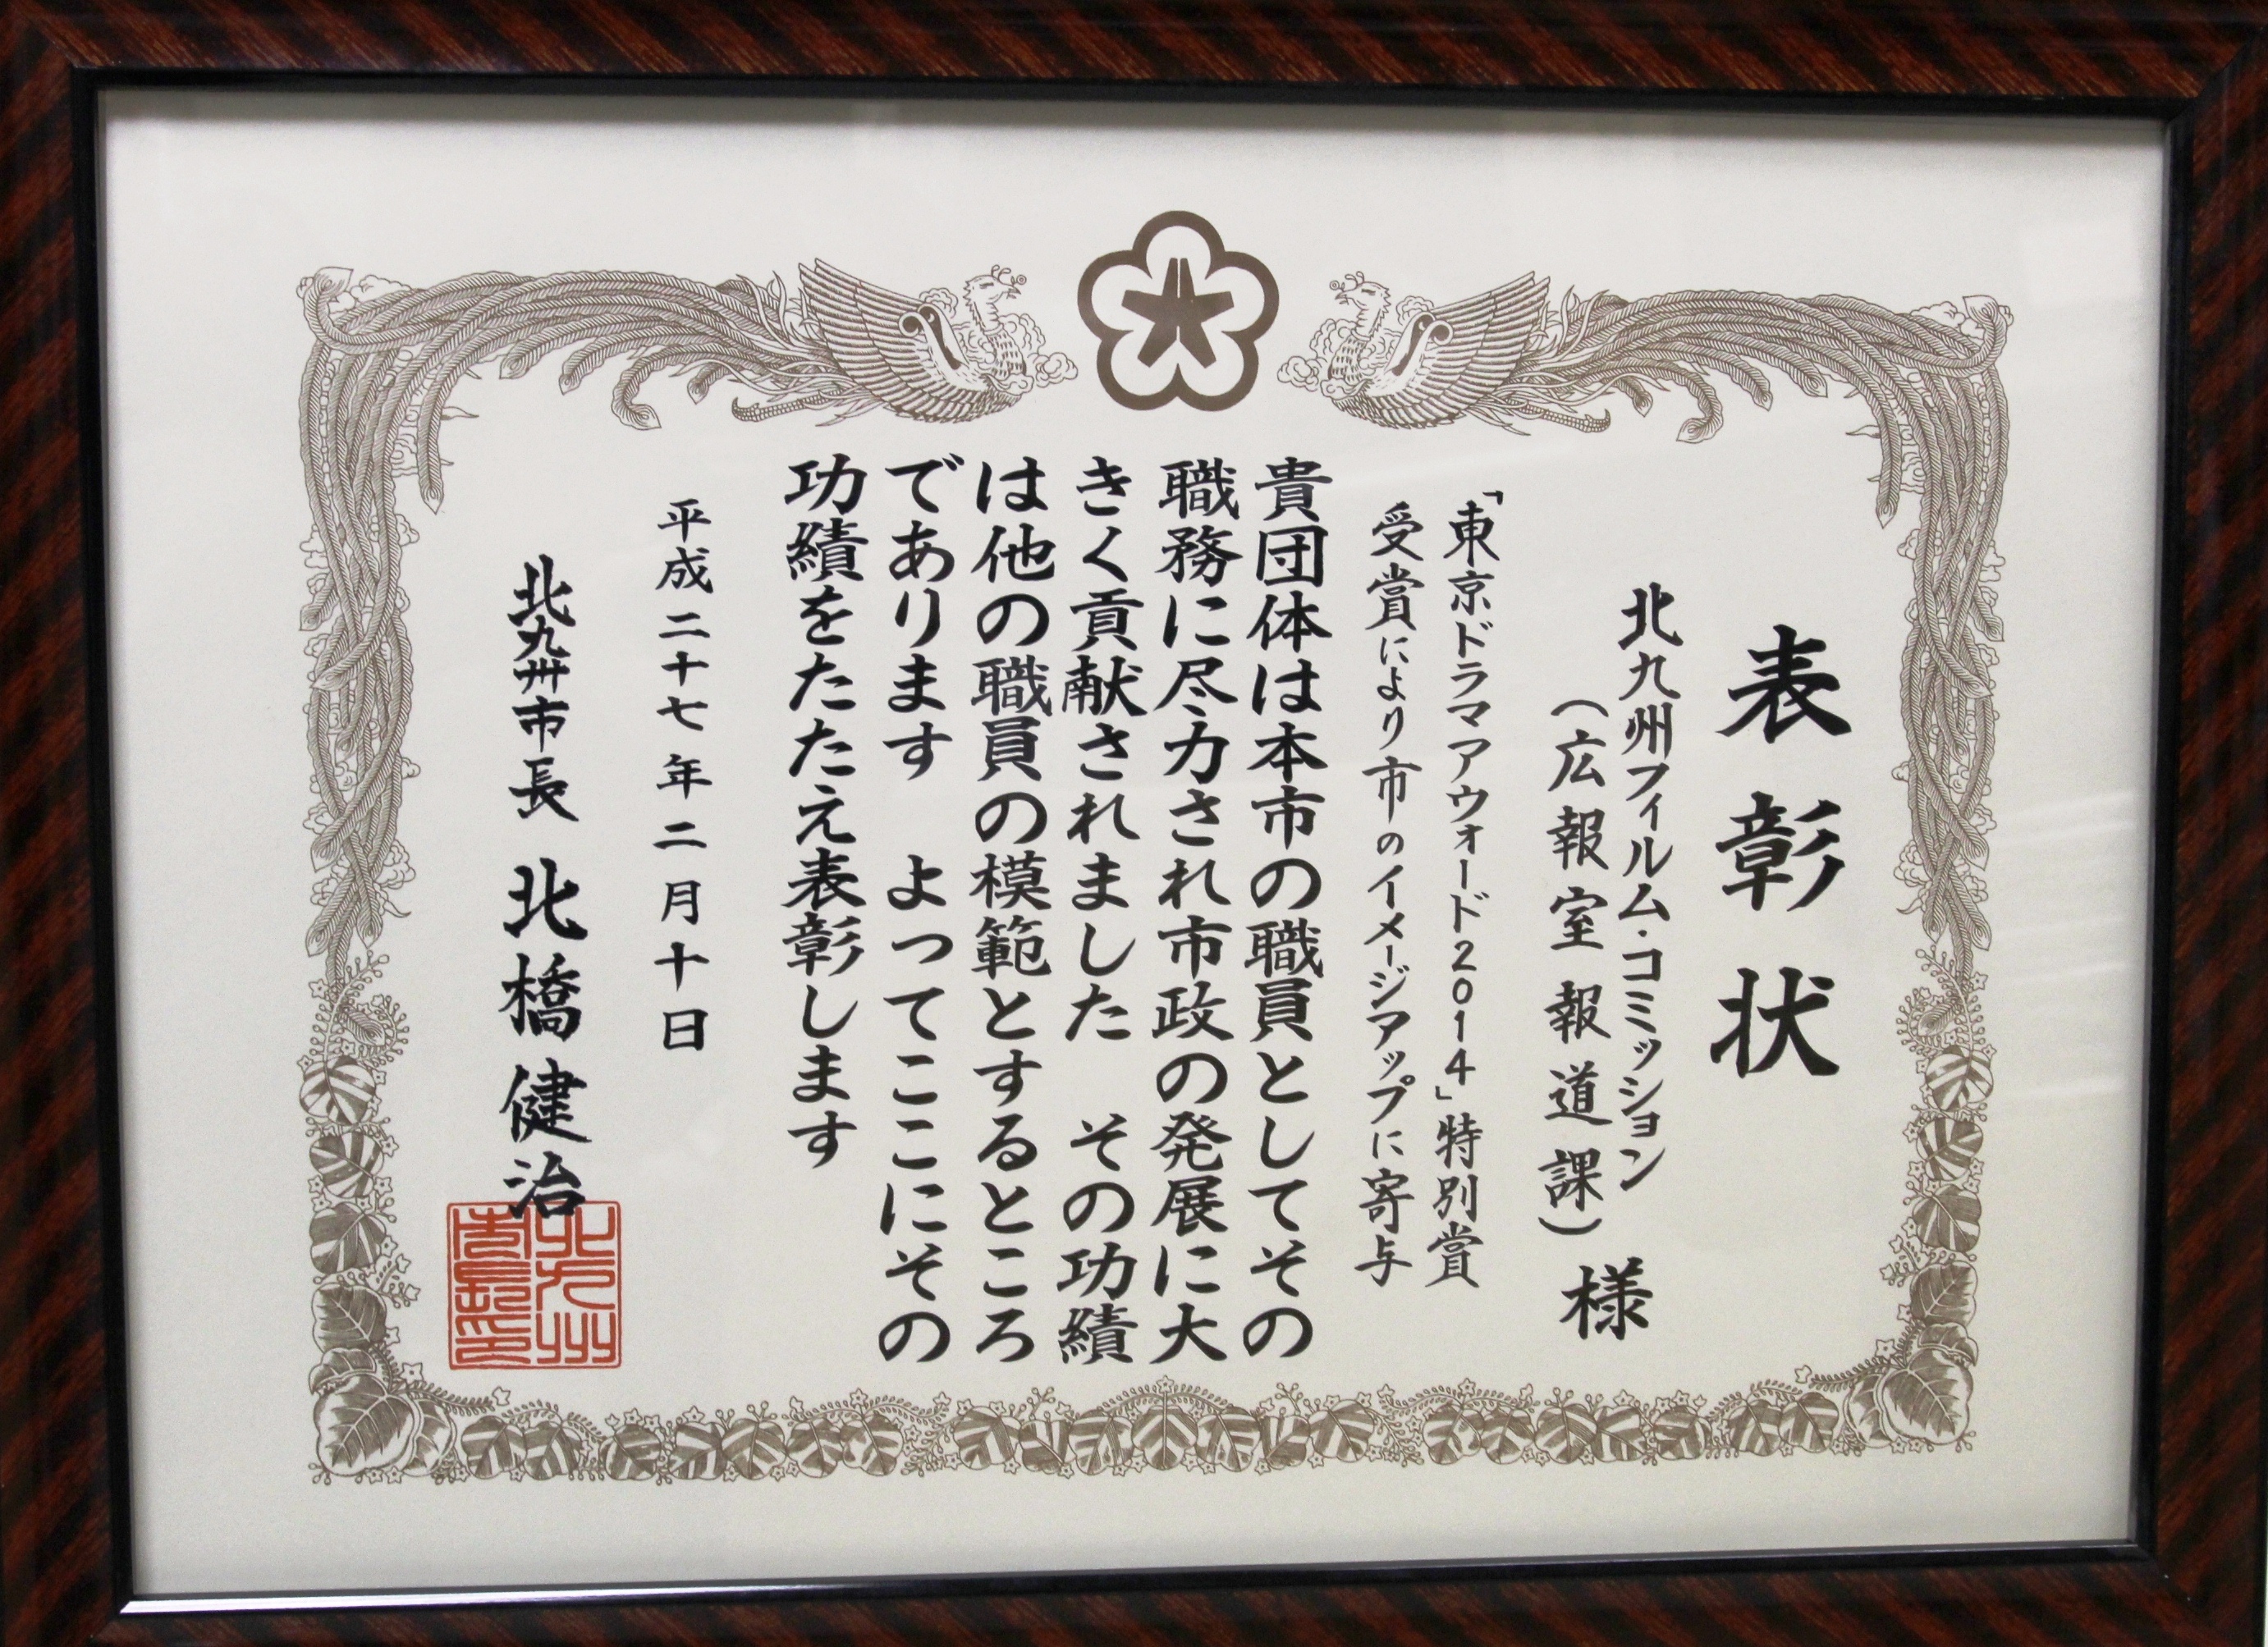 表彰状
北九州フィルム・コミッション
（広報室報道課）様
「東京ドラマアウォード2014」特別賞
受賞により市のイメージアップに寄与
貴団体は本市の職員としてその
職務に尽力され市政の発展に大
きく貢献されました　その功績
は他の職員の模範とするところ
であります　よってここにその
功績をたたえ表彰します
平成二十七年二月十日
北九州市長　北橋健治
北九州
市長印